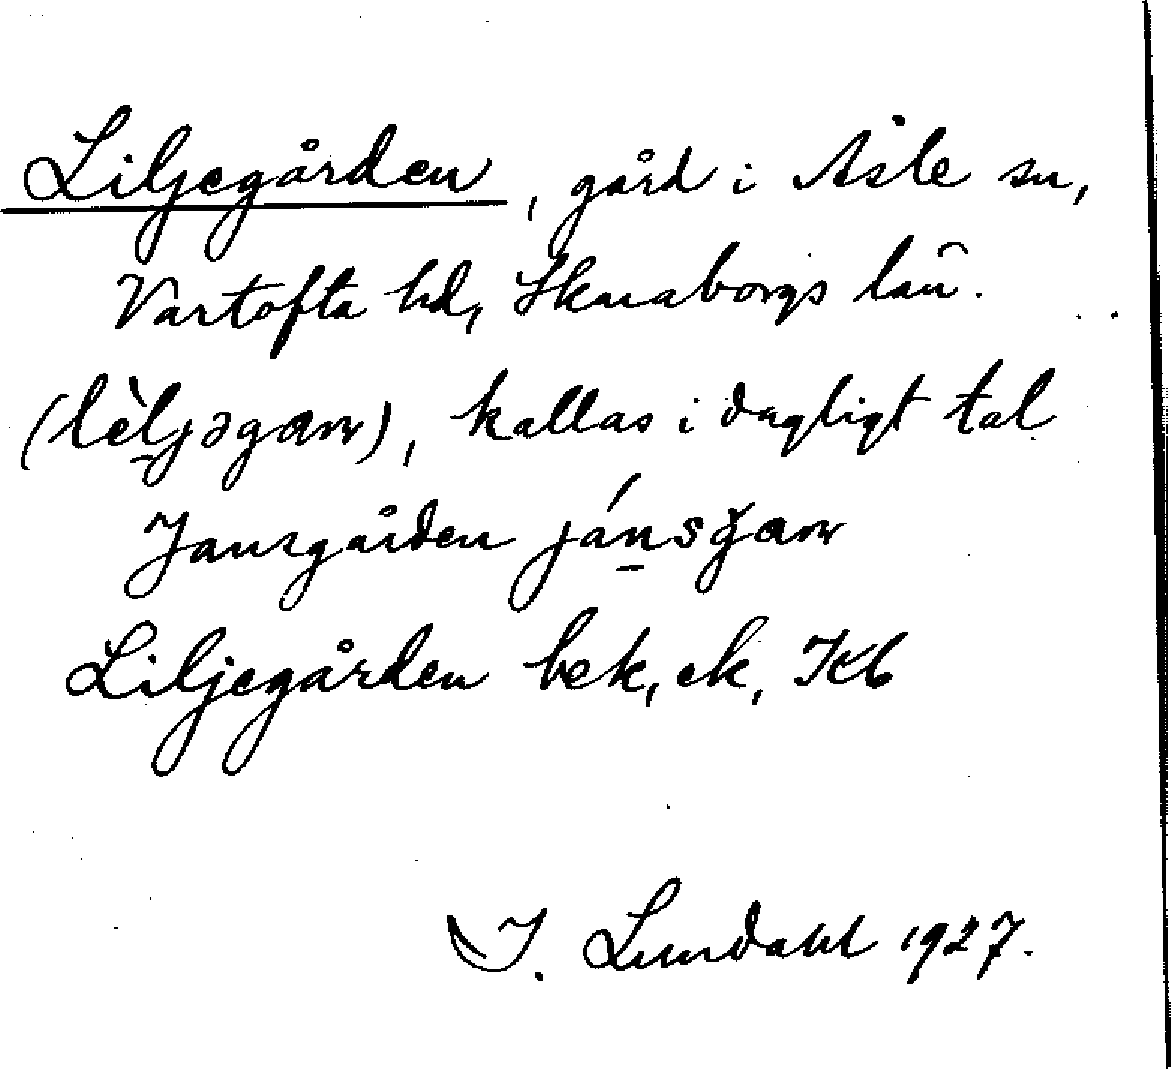 Liljegården, gård i Åsle sn,
Vartofta hd, Skaraborgs län.
(lèljəgaɷr), kallas i dagligt tal
Jansgården jánsgaɷr
Liljegården bek, ek, Kb
I. Lundahl 1927.